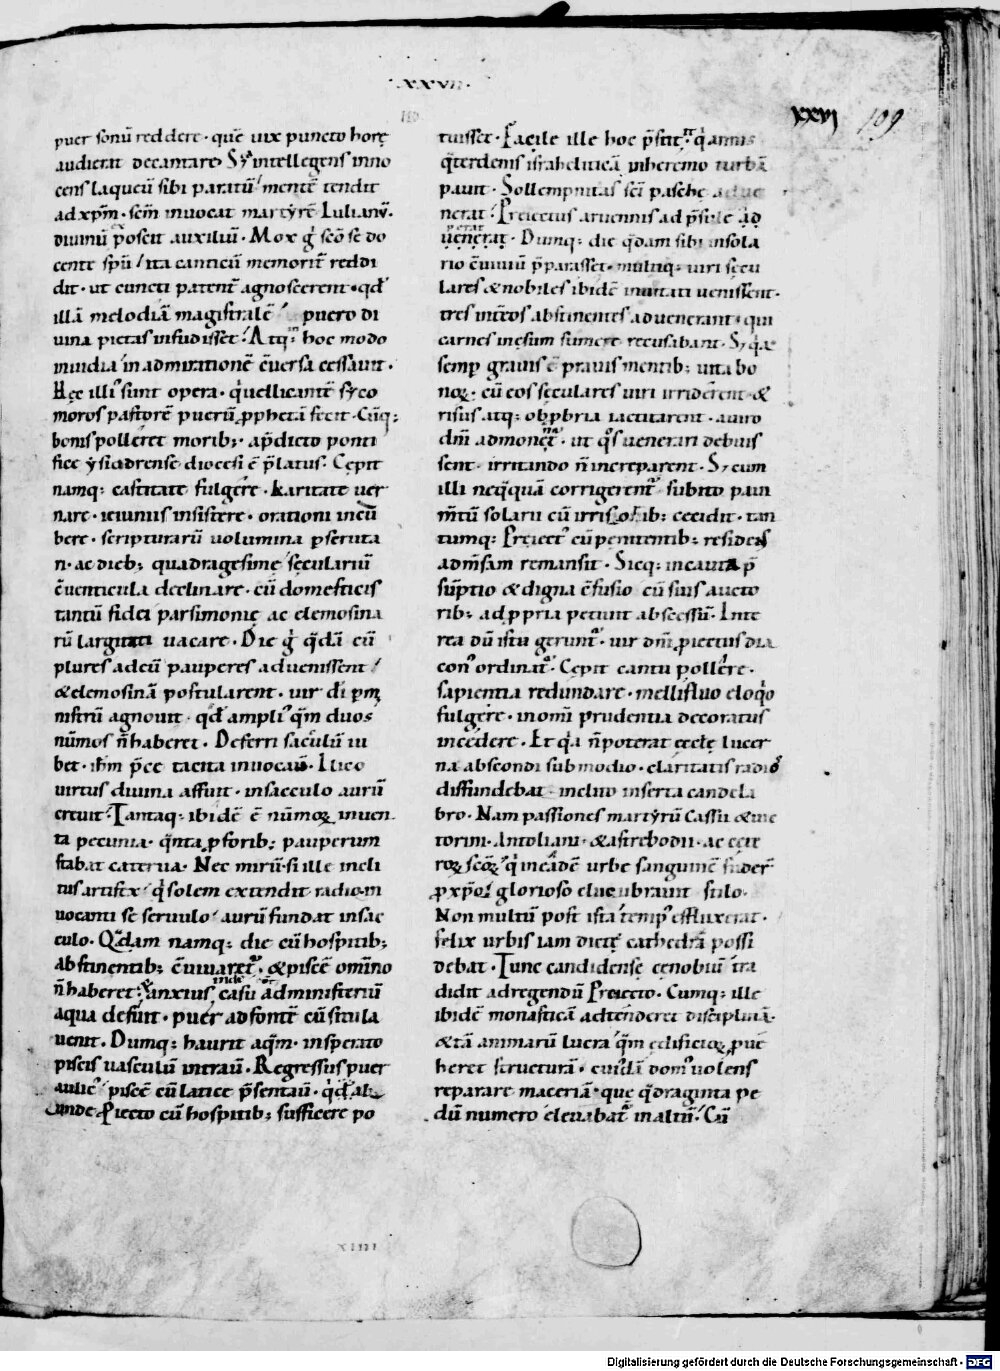 ·XXVII·
XXVI 109
puer sonū reddere · quē uix puncto horę
audierat decantare. Sꝫ intellegens inno
cens laqueū sibi paratū / mentē tendit
ad xpm̄ · scm̄ inuocat martyrē Iulianū.
diuinū poscit auxiliū. Mox g̊ sc̄o se do
cente spū / ita canticū memorit̄ reddi
dit · ut cuncti patent̄ agnoscerent · qđ
illā melodiā magistralē / puero di
uina pietas infudisset. Atq; hoc modo
inuidia in admirationē c̄uersa cessauit.
Hęc illi᾿ sunt opera · q̇ uellicantē syco
moros pastorē puerū ꝓphetā fecit. Cūq;
bonis polleret morib; · a p̄dicto ponti
fice ysiadrense diocesi ē p̄latus. Cępit
namq; castitate fulgere · karitate uer
nare · ieiuniis insistere · orationi incū
bere · scripturarū uolumina ꝑscruta
ri · ac dieb; quadragesimę sęculariū
c̄uenticula declinare · cū domesticis
tantū fidei parsimonię ac elemosina
rū largitati uacare. Die g̊ q̇dā cū
plures ad eū pauperes aduenissent /
& elemosinā postularent · uir dī ꝑ mi
nistrū agnouit · qđ ampli᾿ q̄m duos
nūmos n̄ haberet. Deferri sacculū iu
bet · itm̄ p̄ce tacita inuocauit. Ilico
uirtus diuina affuit · in sacculo aurū
creuit. Tantaq; ibidē ē nūmoꝝ inuen
ta pecunia · q̇nta ꝓ forib; pauperum
stabat caterua. Nec mirū · si ille incli
tus artifex / q̇ solem extendit radio · in
uocanti se seruulo / aurū fundat in sac
culo. Qdam namq; die cū hospitib;
abstinentib; c̄uiuaret᾿ · & piscē omīno
n̄ haberet · anxius inde casu ad ministeriū
aqua defuit · puer ad fontē cū situla
uenit. Dumq; haurit aq̄m · insperato
piscis uasculū intrauit. Regressus puer
aulic᾿ piscē cū latice p̄sentauit · qđ ali
unde Piecto cū hospitib; sufficere po
tuisset. Facile ille hoc p̄stit̄ · q̇ annis
q̄terdenis israheliticā in heremo turbā
pauit. Sollempnitas scī paschę adue
nerat. Preiectus aruennis ad p̄sule ad
uenerat. Dumq; die q̇dam sibi in sola
rio c̄uiuiū p̄parasset · multiq; uiri sęcu
lares & nobiles ibidē inuitati uenissent ·
tres int̄ eos abstinentes aduenerant · qui
carnes in esum sumere recusabant. Sꝫ q̇a
semꝑ grauis ē prauis mentib; uita bo
noꝝ · cū eos sęculares uiri irriderent · &
risus atq; obꝓbria iacularent · a uiro
dn̄i admonent᾿ · ut q̊s uenerari debuis
sent · irritando n̄ increparent. Sꝫ cum
illi neq̇quā corrigerent᾿ · subito paui
mtū solarii cū irrisorib; cecidit · tan
tumq; Preiect᾿ cū penitentib; residens
ad m̄sam remansit. Sicq; incauta p̄
sūptio & digna c̄fusio cū suis aucto
rib; · ad ꝓpria petiuit abscessū. Inte
rea dū ista gerunt᾿ · uir dn̄i p̄iectus dia
con᾿ ordinat᾿. Cępit cantu pollere ·
sapientia redundare · mellifluo eloq̇o
fulgere · in omi prudentia decoratus
incedere. Et q̇a n̄ poterat ęcctę lucer
na abscondi sub modio · claritatis radio᾿
diffundebat · in cliuo inserta candela
bro. Nam passiones martyrū Cassii & uic
torini · Antoliani · & astrebodii · ac cete
roꝝ scōꝝ · q̇ in eadē urbe sanguinē fuder̄
ꝓ xpō / glorioso elucubrauit stilo.
Non multū post ista temp᾿ effluxerat ·
felix urbis iam dictę cathedrā possi
debat. Tunc candidense cenobiū tra
didit ad regendū Preiecto. Cumq; ille
ibidē monasticā adtenderet disciplinā ·
& tā animarū lucra / q̄m ędificioꝝ ꝓue
heret structurā · cui᾿dā dom᾿ uolens
reparare maceriā · quę q̇draginta pe
dū numero eleuabat᾿ in altū. Cū